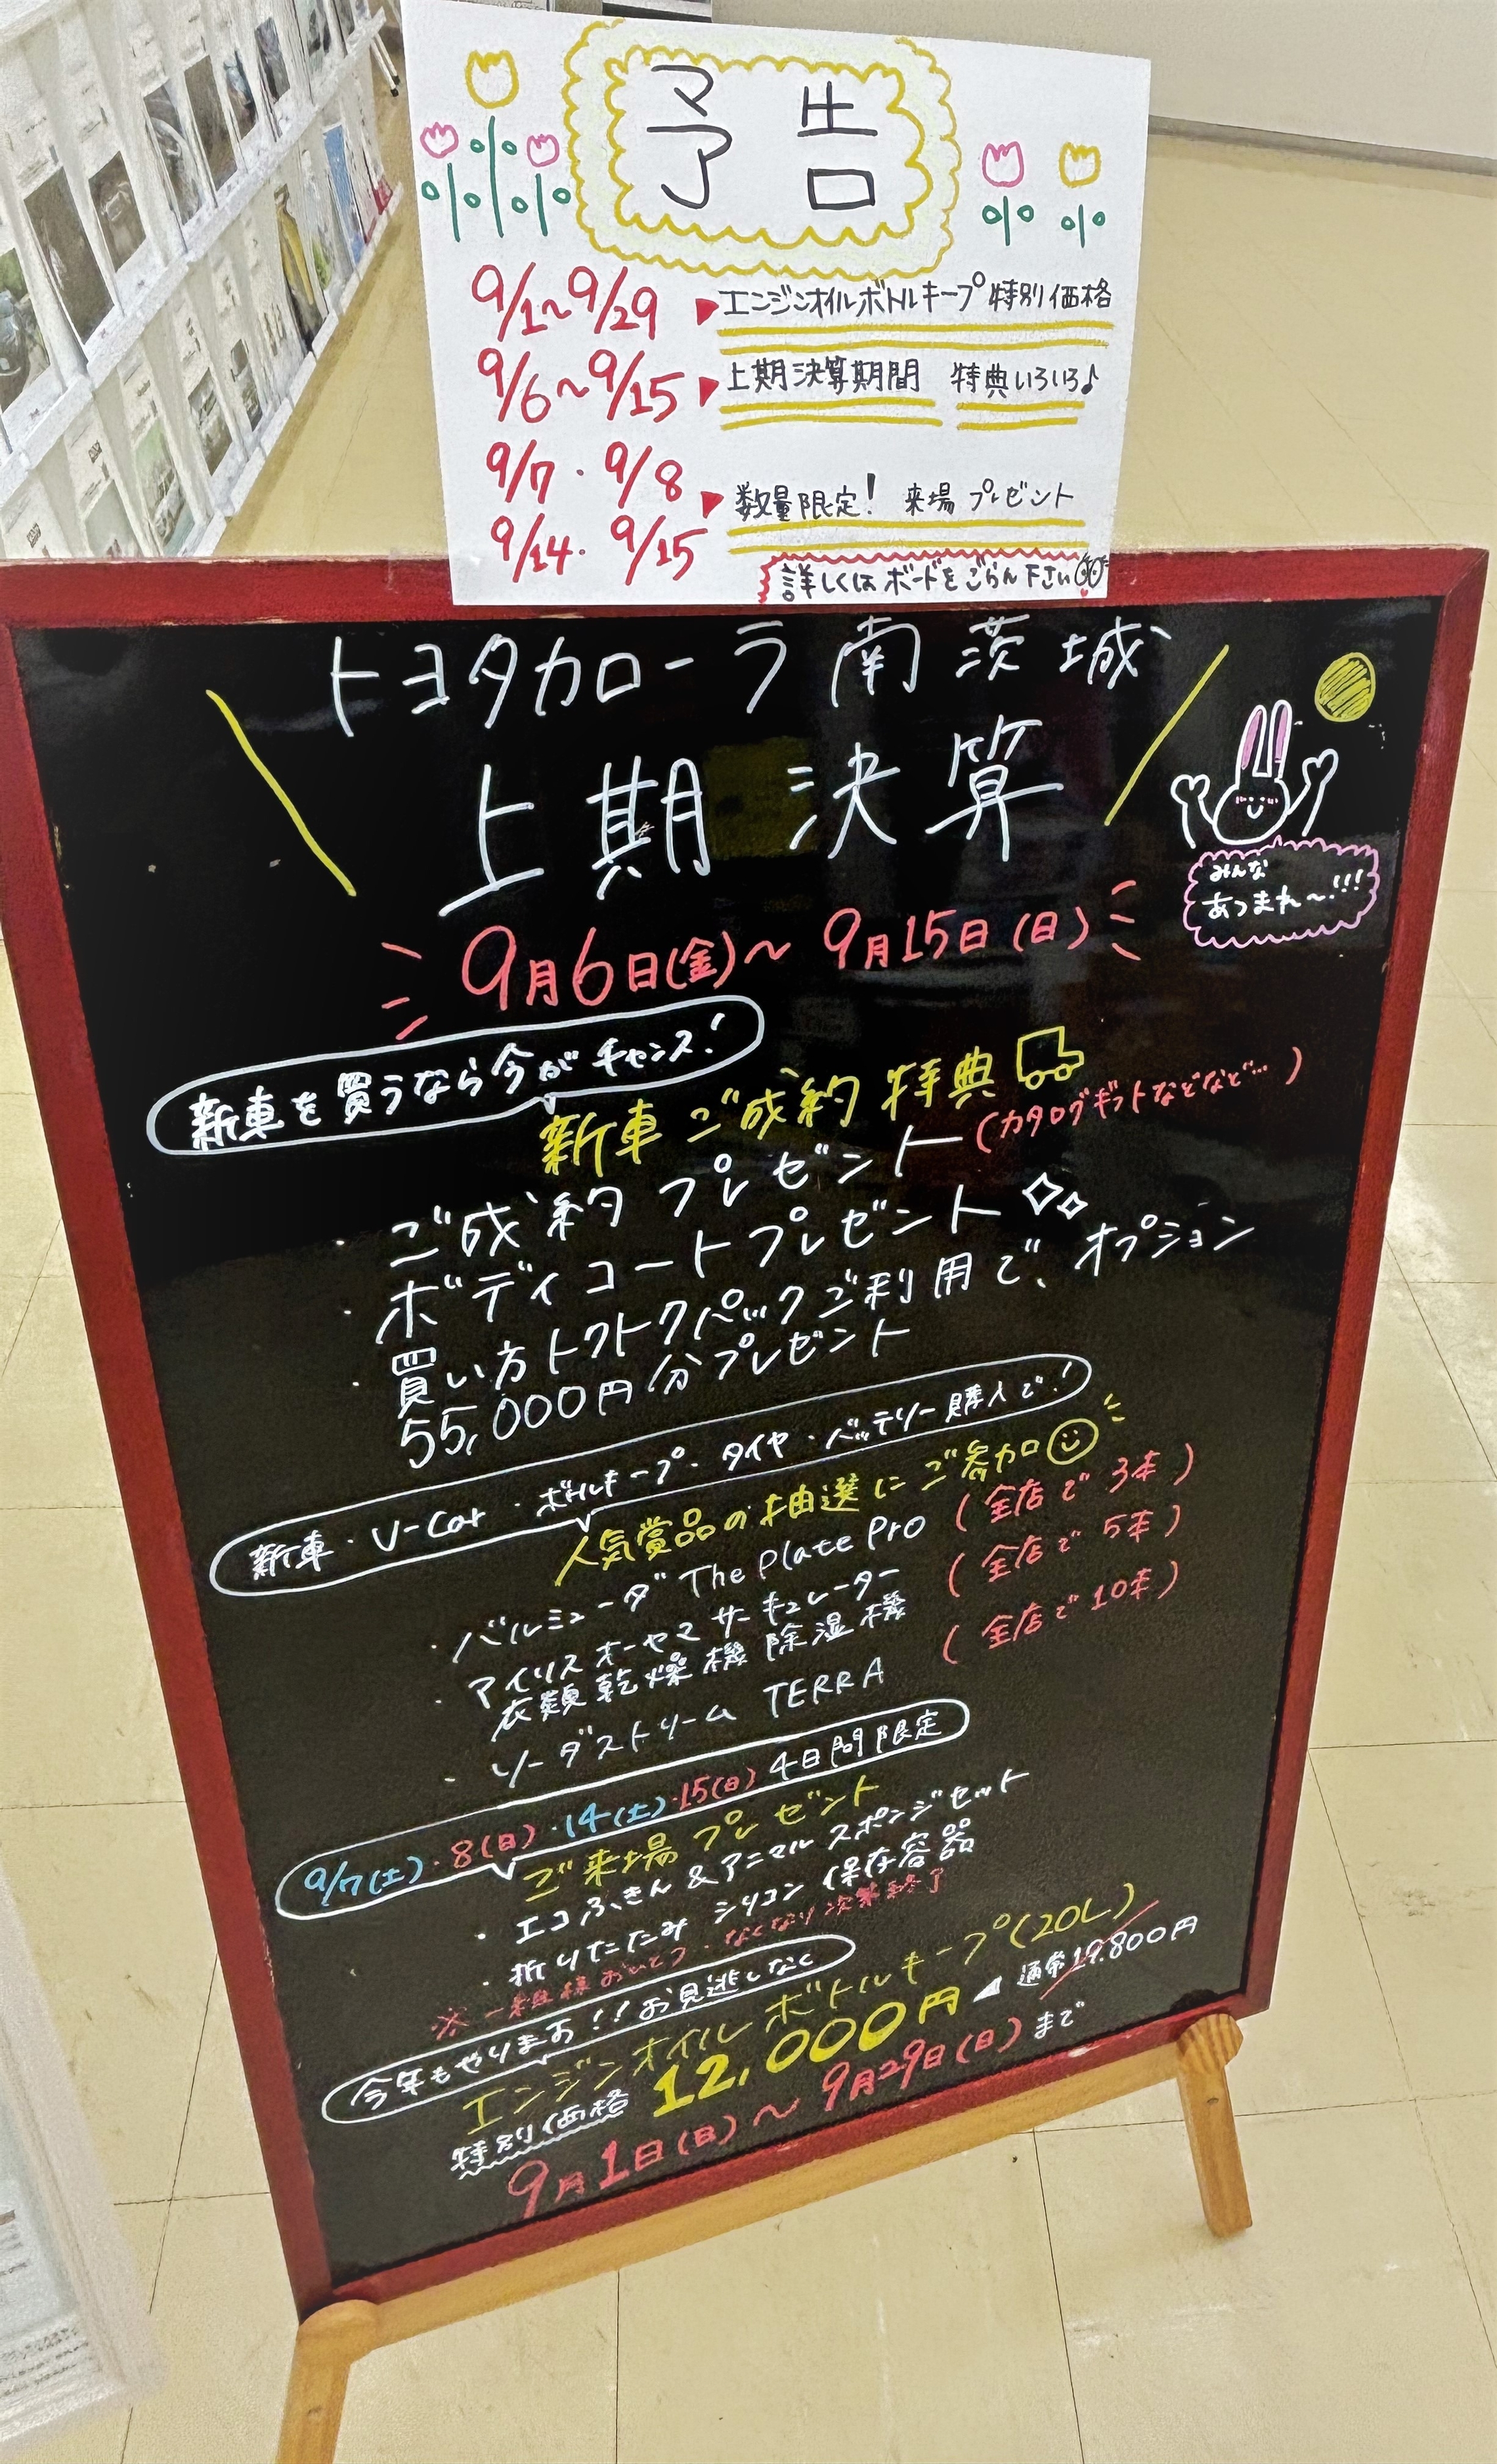 予告
9/1~9/29 ▶エンジンオイルボトルキープ特別価格
9/6~9/15 ▶上期決算期間 特典いろいろ♪
9/7・9/8
9/14・9/15 ▶数量限定! 来場プレゼント
詳しくはボードをごらん下さい
トヨタカローラ南茨城
上期決算
みんな
あつまれ~!!!
9月6日(金)~9月15日(日)
新車を買うなら今がチャンス!
新車ご成約特典
・ご成約プレゼント(カタログギフトなどなど…)
・ボディコートプレゼント
・買い方トクトクパックご利用で、オプション
55,000円分プレゼント
新車・U-Car・ボトルキープ・タイヤ・バッテリー購入で!
人気賞品の抽選にご参加
・バルミューダ The Plate Pro (全店で3本)
・アイリスオーヤマ サーキュレーター
衣類乾燥機除湿機 (全店で5本)
・ソーダストリーム TERRA (全店で10本)
9/7(土)・8(日)・14(土)・15(日) 4日間限定
ご来場プレゼント
・エコふきん&アニマルスポンジセット
・折りたたみシリコン保存容器
※一組様おひとつ・なくなり次第終了
今年もやります!!お見逃しなく
エンジンオイルボトルキープ(20L)
特別価格 12,000円 ◀ 通常19,800円
9月1日(日)~9月29日(日)まで